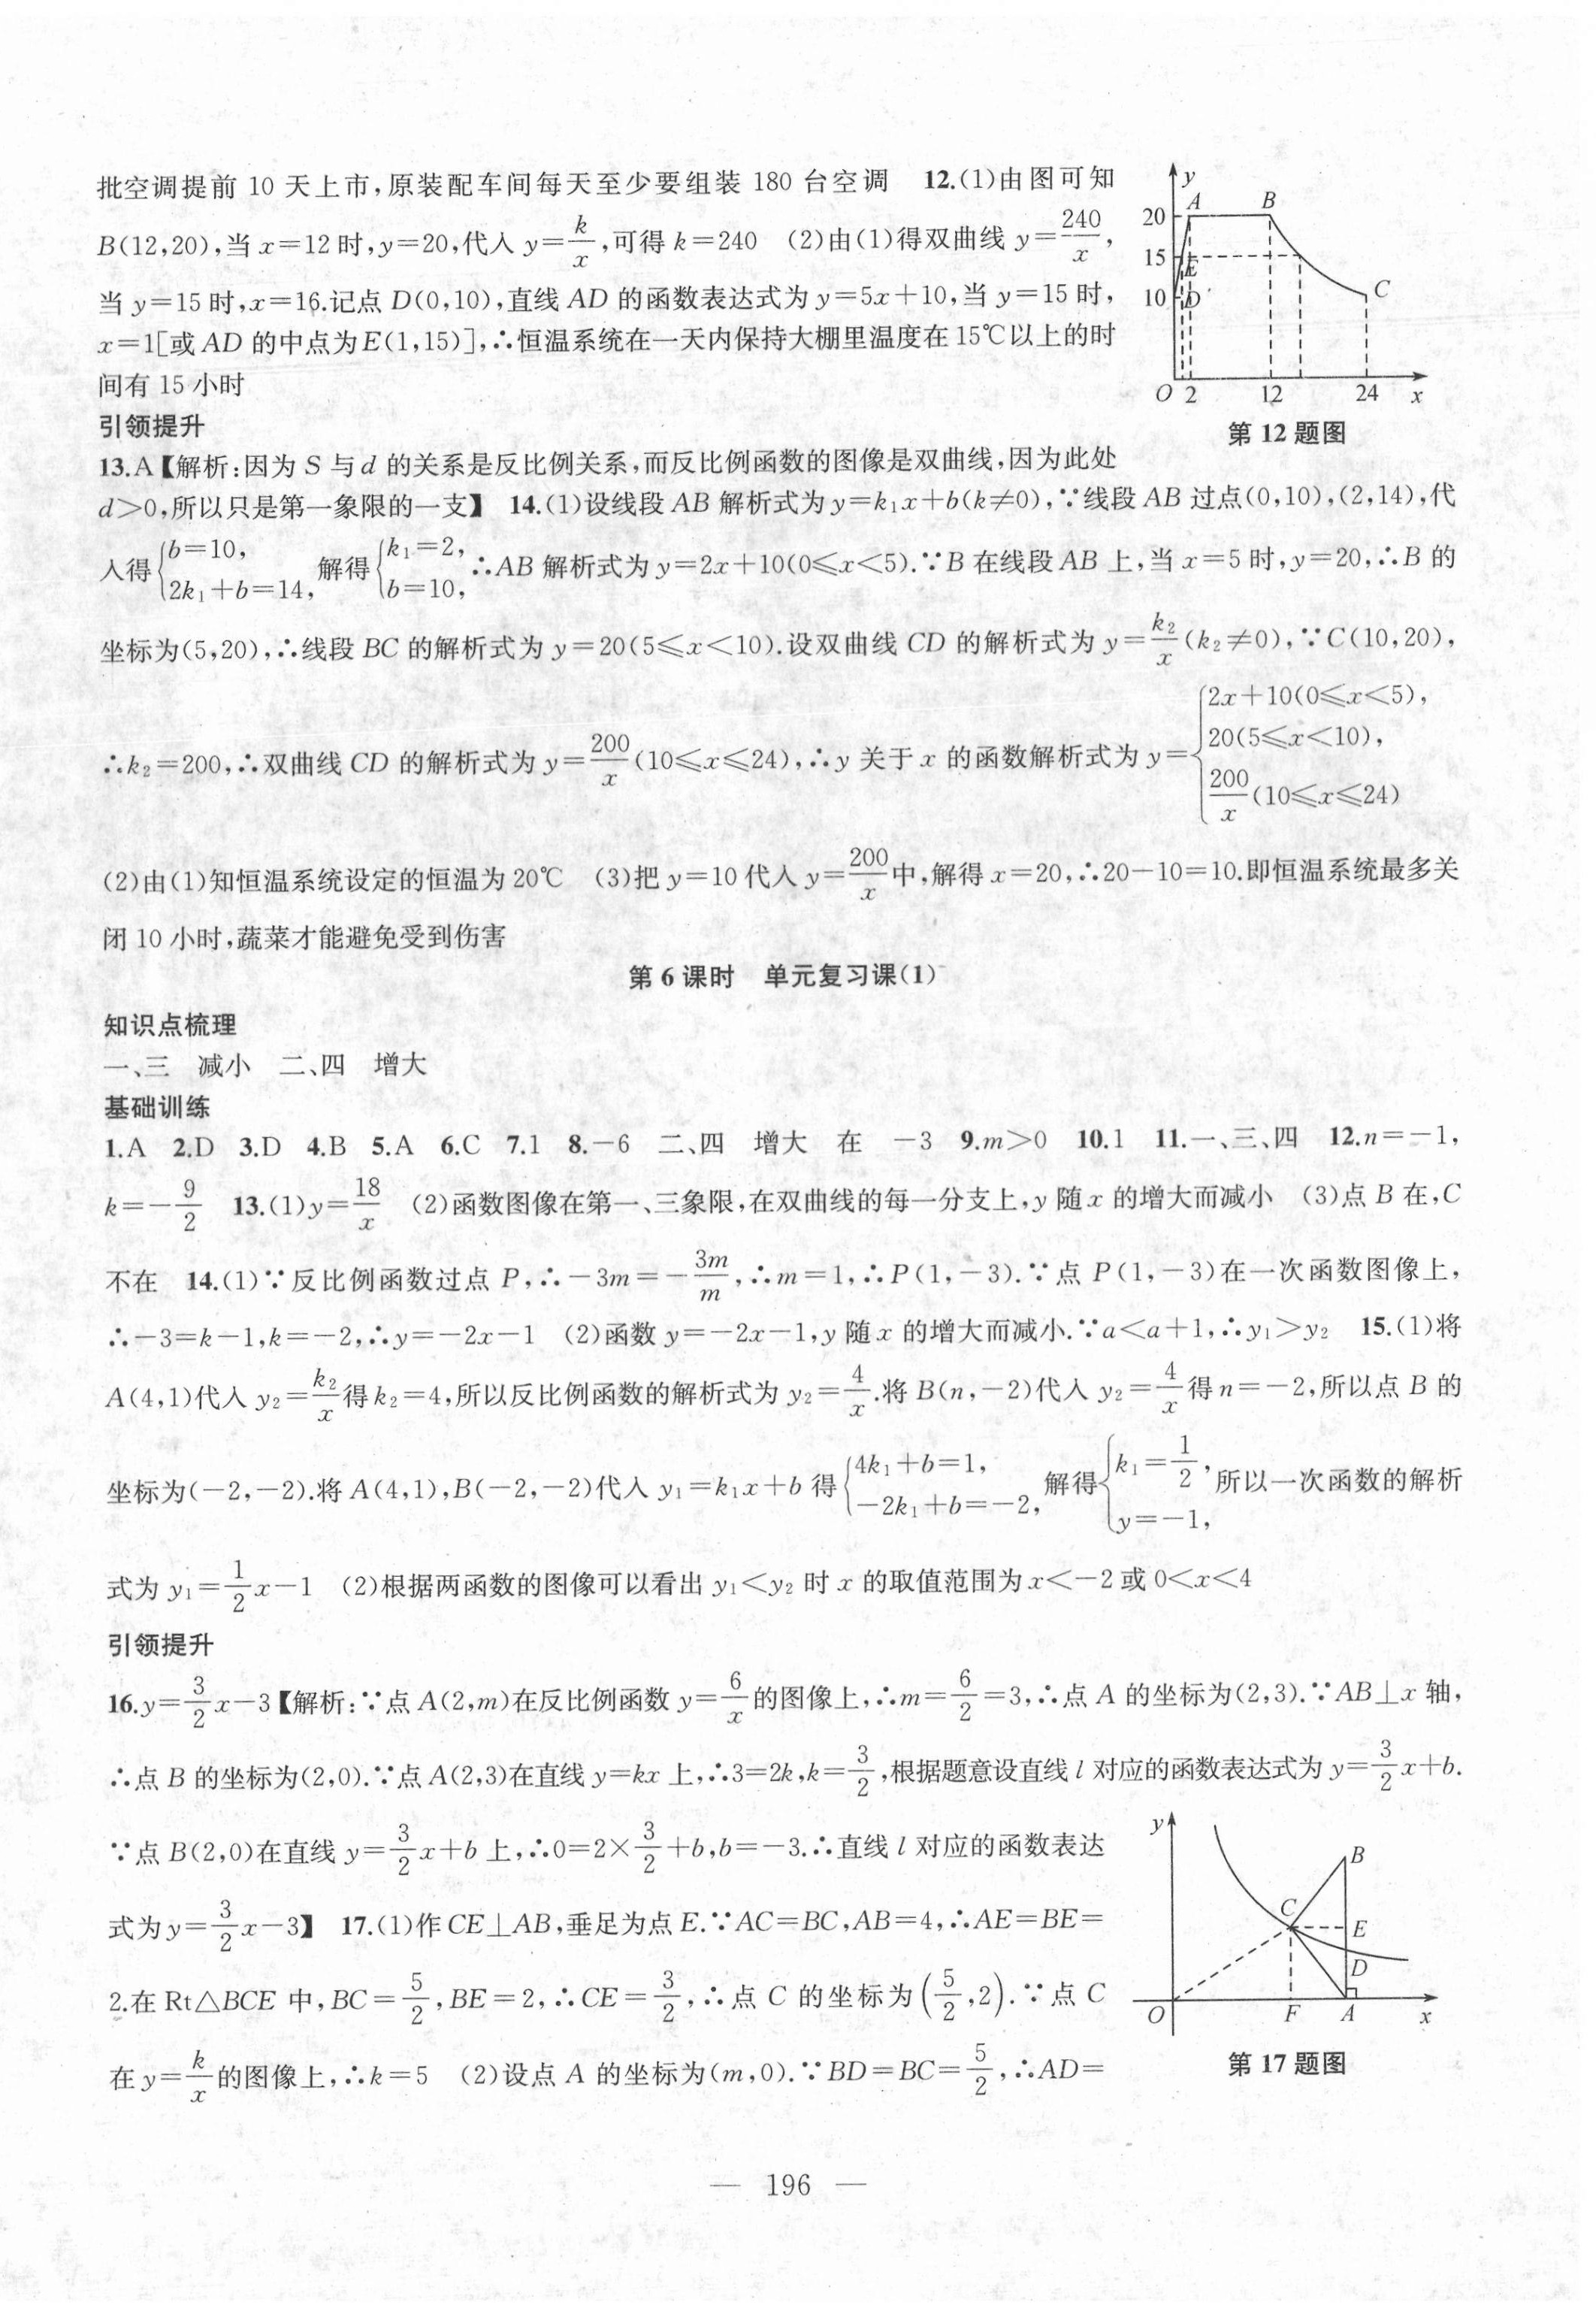 批空调提前 10 天上市,原装配车间每天至少要组装 180 台空调　12.(1)由图可知
B(12,20),当 x=12 时,y=20,代入 y=k/x,可得 k=240　(2)由(1)得双曲线 y=240/x,
当 y=15 时,x=16.记点 D(0,10),直线 AD 的函数表达式为 y=5x+10,当 y=15 时,
x=1[或 AD 的中点为E(1,15)],∴恒温系统在一天内保持大棚里温度在 15℃以上的时
间有 15 小时
y
A
B
20
15
E
10
D
C
O 2 12 24 x
第 12 题图
引领提升
13.A【解析:因为 S 与 d 的关系是反比例关系,而反比例函数的图像是双曲线,因为此处
d>0,所以只是第一象限的一支】　14.(1)设线段 AB 解析式为 y=k₁x+b(k≠0),∵线段 AB 过点(0,10),(2,14),代
入得{b=10, 2k₁+b=14,　解得{k₁=2, b=10,　∴AB 解析式为 y=2x+10(0⩽x<5).∵B 在线段 AB 上,当 x=5 时,y=20,∴B 的
坐标为(5,20),∴线段 BC 的解析式为 y=20(5⩽x<10).设双曲线 CD 的解析式为 y=k₂/x(k₂≠0),∵C(10,20),
∴k₂=200,∴双曲线 CD 的解析式为 y=200/x(10⩽x⩽24),∴y 关于 x 的函数解析式为 y={2x+10(0⩽x<5), 20(5⩽x<10), 200/x(10⩽x⩽24)
(2)由(1)知恒温系统设定的恒温为 20℃　(3)把 y=10 代入 y=200/x中,解得 x=20,∴20-10=10.即恒温系统最多关
闭 10 小时,蔬菜才能避免受到伤害
第 6 课时　单元复习课(1)
知识点梳理
一、三　减小　二、四　增大
基础训练
1.A　2.D　3.D　4.B　5.A　6.C　7.1　8.-6　二、四　增大　在　-3　9.m>0　10.1　11.一、三、四　12.n=-1,
k=-9/2　13.(1)y=18/x　(2)函数图像在第一、三象限,在双曲线的每一分支上,y 随 x 的增大而减小　(3)点 B 在,C
不在　14.(1)∵反比例函数过点 P,∴-3m=-3m/m,∴m=1,∴P(1,-3).∵点 P(1,-3)在一次函数图像上,
∴-3=k-1,k=-2,∴y=-2x-1　(2)函数 y=-2x-1,y 随 x 的增大而减小.∵a<a+1,∴y₁>y₂　15.(1)将
A(4,1)代入 y₂=k₂/x得 k₂=4,所以反比例函数的解析式为 y₂=4/x.将 B(n,-2)代入 y₂=4/x得 n=-2,所以点 B 的
坐标为(-2,-2).将 A(4,1),B(-2,-2)代入 y₁=k₁x+b 得{4k₁+b=1, -2k₁+b=-2,　解得{k₁=1/2, y=-1,　所以一次函数的解析
式为 y₁=1/2x-1　(2)根据两函数的图像可以看出 y₁<y₂ 时 x 的取值范围为 x<-2 或 0<x<4
引领提升
16.y=3/2x-3【解析:∵点 A(2,m)在反比例函数 y=6/x的图像上,∴m=6/2=3,∴点 A 的坐标为(2,3).∵AB⊥x 轴,
∴点 B 的坐标为(2,0).∵点 A(2,3)在直线 y=kx 上,∴3=2k,k=3/2,根据题意设直线 l 对应的函数表达式为 y=3/2x+b.
∵点 B(2,0)在直线 y=3/2x+b 上,∴0=2×3/2+b,b=-3.∴直线 l 对应的函数表达
式为 y=3/2x-3】　17.(1)作 CE⊥AB,垂足为点 E.∵AC=BC,AB=4,∴AE=BE=
2.在 Rt△BCE 中,BC=5/2,BE=2,∴CE=3/2,∴点 C 的坐标为(5/2,2).∵点 C
在 y=k/x的图像上,∴k=5　(2)设点 A 的坐标为(m,0).∵BD=BC=5/2,∴AD=
y
B
C
E
D
O F A x
第 17 题图
— 196 —